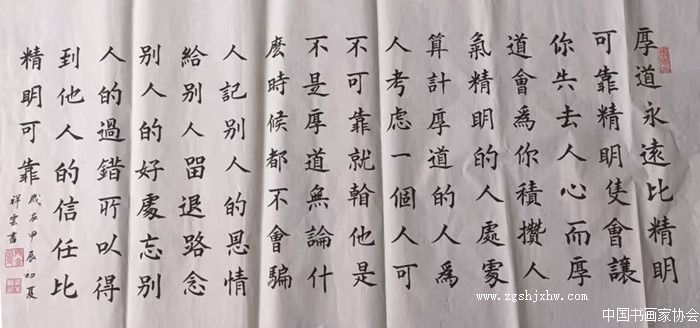 厚道永遠比精明
可靠精明隻會讓
你失去人心而厚
道會爲你積攢人
氣精明的人處處
算計厚道的人爲
人考虑一個人可
不可靠就翰他是
不是厚道無論什
麽時候都不會騙
人記别人的恩情
給别人留退路念
别人的好處忘别
人的過錯所以得
到他人的信任比
精明可靠
歲在甲辰初夏
祥雲書
www.zgshjxhw.com
中国书画家协会